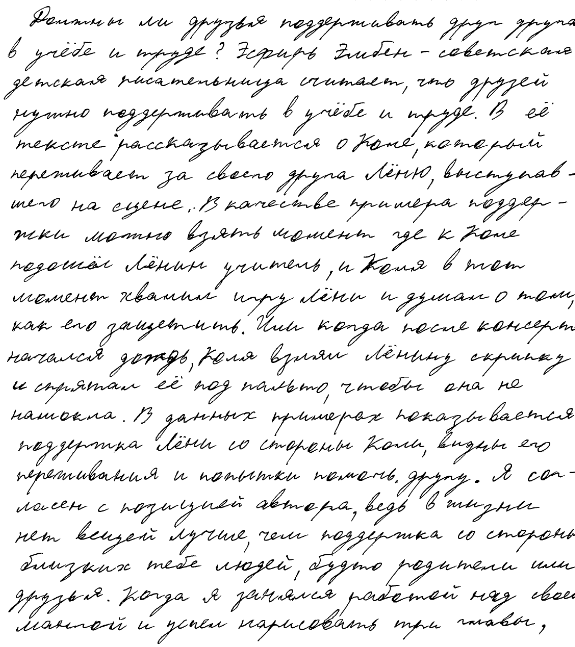 Должны ли друзья поддерживать друг друга
в учёбе и труде? Эсфирь Эмбен - советская
детская писательница считает, что друзей
нужно поддерживать в учёбе и труде. В её
тексте рассказывается о Коле, который
переживает за своего друга Лёню, выступав-
шего на сцене. В качестве примера поддер-
жки можно взять момент где к Коле
подошёл Лёнин учитель, и Коля в тот
момент хвалил игру Лёни и думал о том,
как его защетить. Или когда после концерт
начался дождь, Коля взял Лёнину скрипку
и спрятал её под пальто, чтобы она не
намокла. В данных примерах показывается
поддержка Лёни со стороны Коли, видны его
переживания и попытки помочь другу. Я сог-
ласен с позицией автора, ведь в жизни
нет вещей лучше, чем поддержка со стороны
близких тебе людей, будто родители или
друзья. Когда я занялся работой над своей
мангой и успел нарисовать три главы,